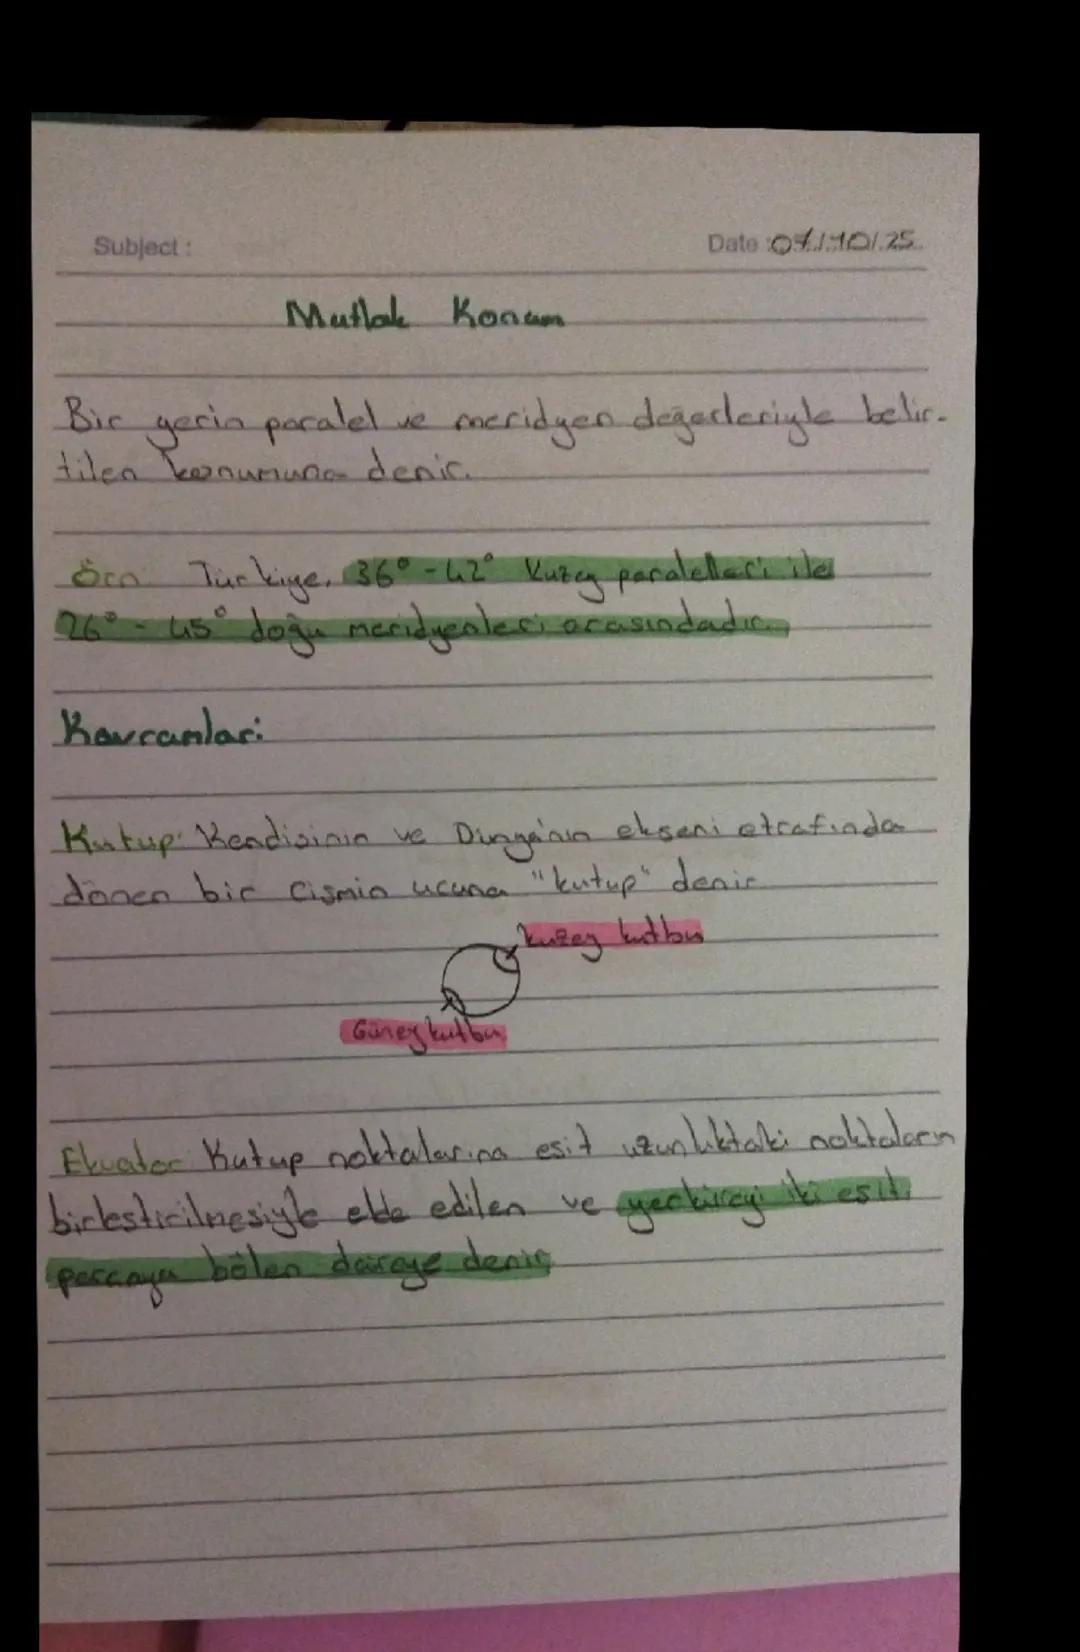 Subject :
Date : 07/10/25
Mutlak Konum
Bir yerin paralel ve meridyen değerleriyle belir-
tilen konumuna denir.
Örn: Türkiye, 36° - 42° Kuzey paralelleri ile
26° - 45° doğu meridyenleri arasındadır.
Kavramlar:
Kutup: Kendisinin ve Dünya'nın ekseni etrafında
dönen bir cismin ucuna "kutup" denir.
kuzey kutbu
Güney kutbu
Ekvator: Kutup noktalarına eşit uzunluktaki noktaların
birleştirilmesiyle elde edilen ve yerküreyi iki eşit
parçaya bölen daireye denir.